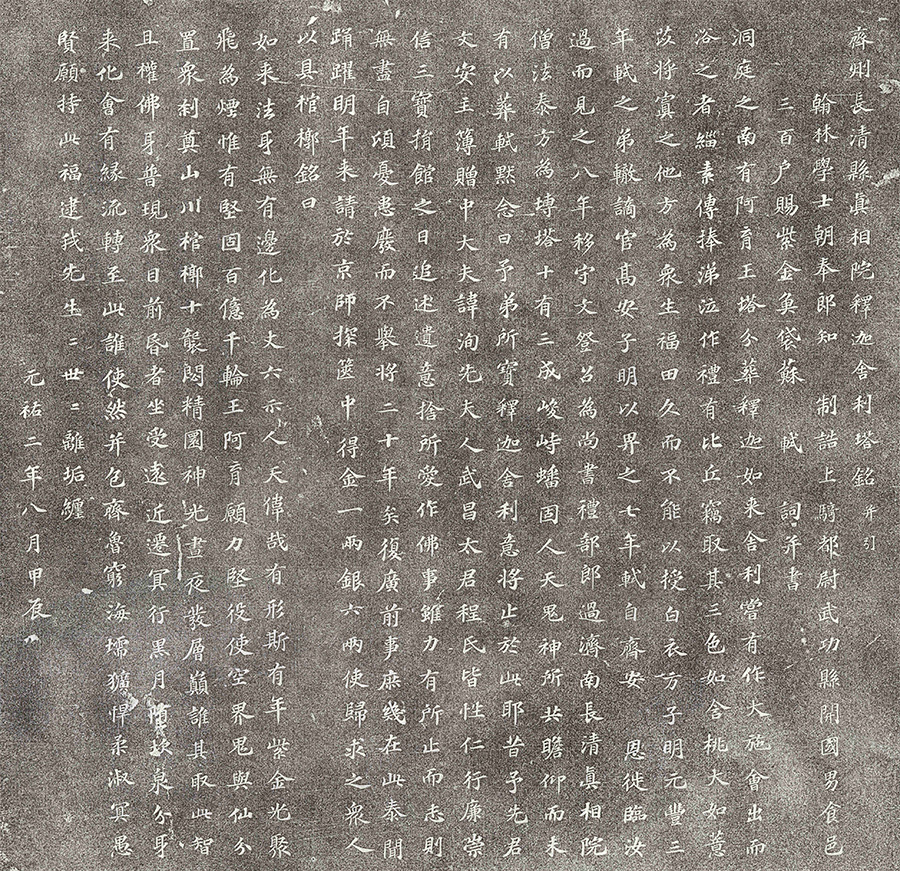 齊州長清縣真相院釋迦舍利塔銘并引
翰林學士朝奉郎知制誥上騎都尉武功縣開國男食邑
三百户賜紫金魚袋蘇軾詞并書
洞庭之南有阿育王塔分葬釋迦如来舍利嘗有作大施會出而
浴之者緇素傳捧涕泣作禮有比丘竊取其三色如含桃大如薏
苡將寘之他方為衆生福田久而不能以授白衣方子明元豐三
年軾之弟轍謫官髙安子明以畀之七年軾自齊安恩徙臨汝
過而見之八年移守文登召為尚書禮部郎過濟南長清真相院
僧法泰方為塼塔十有三成峻峙蟠固人天鬼神所共瞻仰而未
有以葬軾默念曰予弟所寶釋迦舍利意將止於此耶昔予先君
文安主簿贈中大夫諱洵先夫人武昌太君程氏皆性仁行廉崇
信三寶捐館之日追述遺意捨所愛作佛事雖力有所止而志則
無盡自頃憂患廢而不舉將二十年矣復廣前事庶幾在此泰聞
踊躍明年来請於京師探篋中得金一兩銀六兩使歸求之衆人
以具棺槨銘曰
如来法身無有邊化為丈六示人天偉哉有形斯有年紫金光聚
飛為煙惟有堅固百億千輪王阿育願力堅役使空界鬼與仙分
置衆刹奠山川棺槨十襲閟精圜神光晝夜發層巔誰其取此智
且權佛身普現衆目前昏者坐受遠近遷冥行黑月墮坎泉分身
来化會有緣流轉至此誰使然并包齊魯窮海壖獷悍柔淑冥愚
賢願持此福逮我先生二世二離垢纏
元祐二年八月甲辰